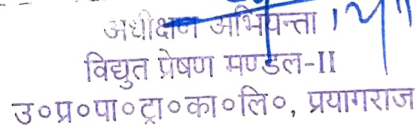 अधीक्षण अभियन्ता
विद्युत प्रेषण मण्डल-II
उ०प्र०पा०ट्रा०का०लि०, प्रयागराज